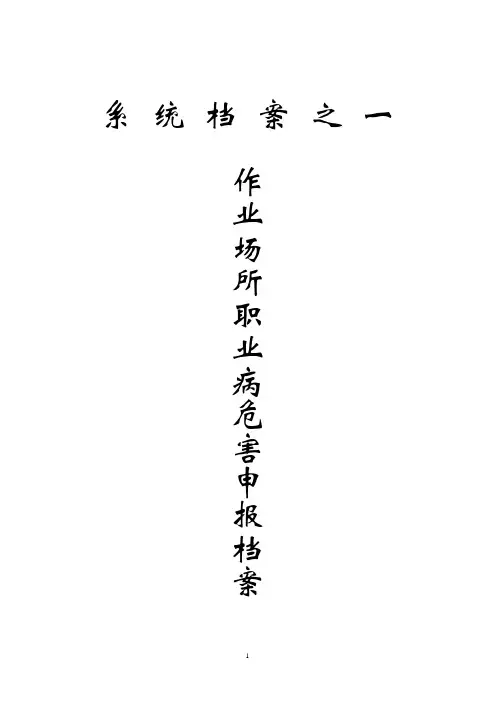 系统档案之一
作业场所职业病危害申报档案
1